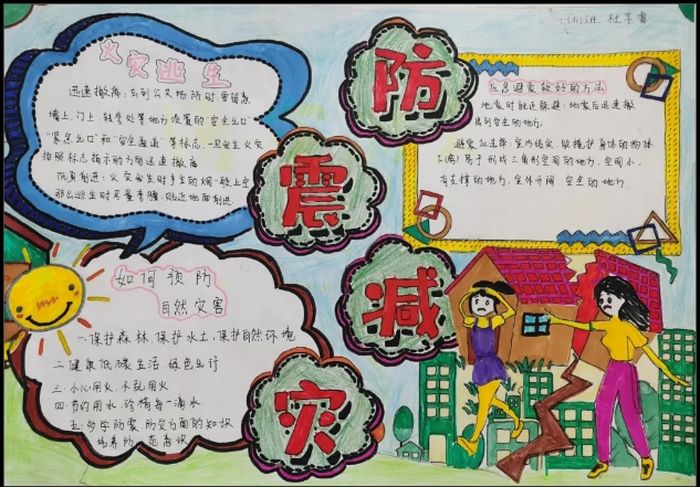 六(1)班 杜芊
防震减灾
火灾逃生
迅速撤离:去到公共场所时要留意
墙上、门上、转弯处等地方设置的“安全出口”
“紧急出口”和“安全通道”等标志,一旦发生火灾
按照标志指示的方向迅速撤离
低身前进:火灾发生时产生的烟一般上空
那么逃生时尽量弯腰,贴近地面前进
应急避震较好的方法
地震时就近躲避:地震后迅速撤
离到安全的地方.
避震应选择:室内结实,能掩护身体的物体
下(旁)易于形成三角形空间的地方,空间小,
有支撑的地方,室外开阔,安全的地方.
如何预防
自然灾害
一:保护森林、保护水土、保护自然环境
二:健康低碳生活,绿色出行
三:小心用火,不乱用火
四:节约用水,珍惜每一滴水
五:多学防震,防灾方面的知识
培养防范意识